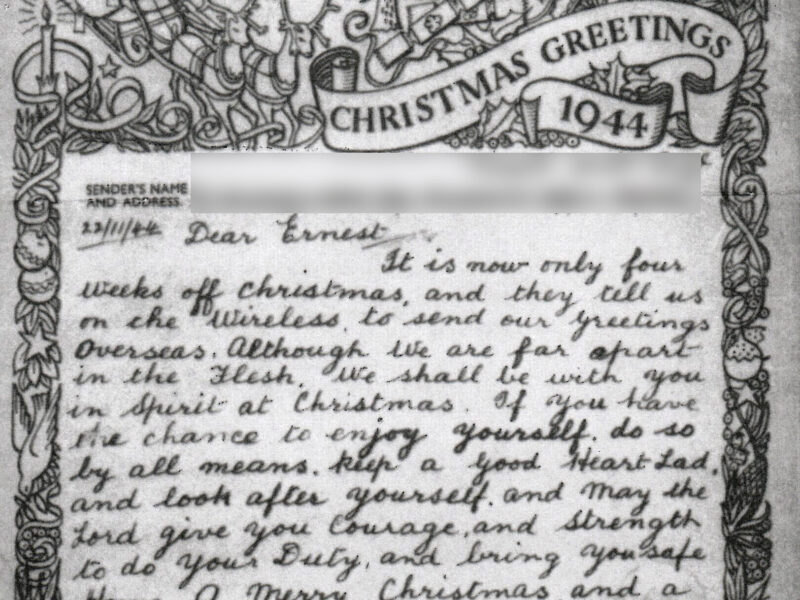 CHRISTMAS GREETINGS
1944
SENDER'S NAME
AND ADDRESS.
22/11/44 Dear Ernest
It is now only four
weeks off Christmas, and they tell us
on the Wireless, to send our greetings
Overseas. Although We are far apart
in the Flesh, We shall be with you
in Spirit at Christmas. If you have
the chance to enjoy yourself. do so
by all means. keep a good Heart Lad,
and look after yourself. and may the
Lord give you Courage, and Strength
to do Your Duty, and bring you safe
Home. A Merry Christmas and a